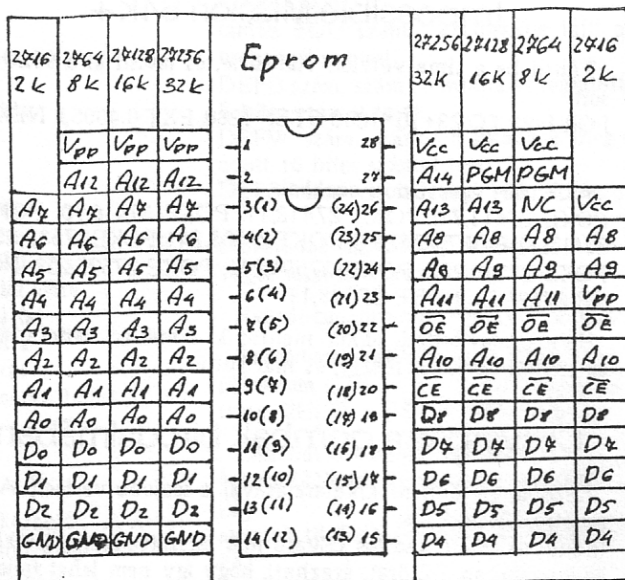 2716 2764 27128 27256 Eprom 27256 27128 2764 2716
2k 8k 16k 32k 32k 16k 8k 2k
Vpp Vpp Vpp 1 28 Vcc Vcc Vcc
A12 A12 A12 2 27 A14 PGM PGM
A7 A7 A7 A7 3(1) (24)26 A13 A13 NC Vcc
A6 A6 A6 A6 4(2) (23)25 A8 A8 A8 A8
A5 A5 A5 A5 5(3) (22)24 A9 A9 A9 A9
A4 A4 A4 A4 6(4) (21)23 A11 A11 A11 Vpp
A3 A3 A3 A3 7(5) (20)22 O̅E̅ O̅E̅ O̅E̅ O̅E̅
A2 A2 A2 A2 8(6) (19)21 A10 A10 A10 A10
A1 A1 A1 A1 9(7) (18)20 C̅E̅ C̅E̅ C̅E̅ C̅E̅
A0 A0 A0 A0 10(8) (17)19 D8 D8 D8 D8
D0 D0 D0 D0 11(9) (16)18 D7 D7 D7 D7
D1 D1 D1 D1 12(10) (15)17 D6 D6 D6 D6
D2 D2 D2 D2 13(11) (14)16 D5 D5 D5 D5
GND GND GND GND 14(12) (13)15 D4 D4 D4 D4